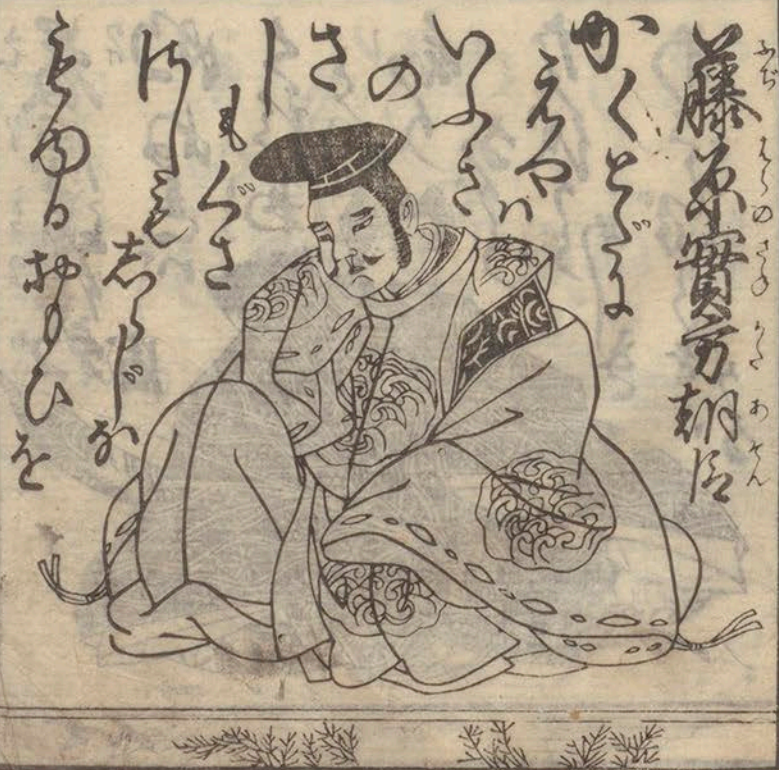 藤原實方朝臣
ふぢはらのさねかたあそん
かくとだに
えやハ
いふき
の
さ
し
もぐさ
さしも
志らじな
もゆるおもひを